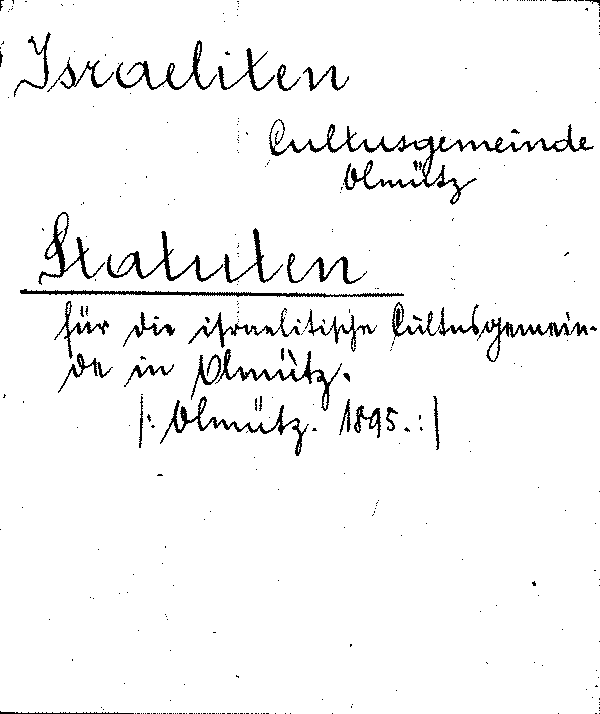 Israeliten
Cultusgemeinde
Olmütz
Statuten
für die israelitische Cultusgemein-
de in Olmütz.
|: Olmütz. 1895. :|